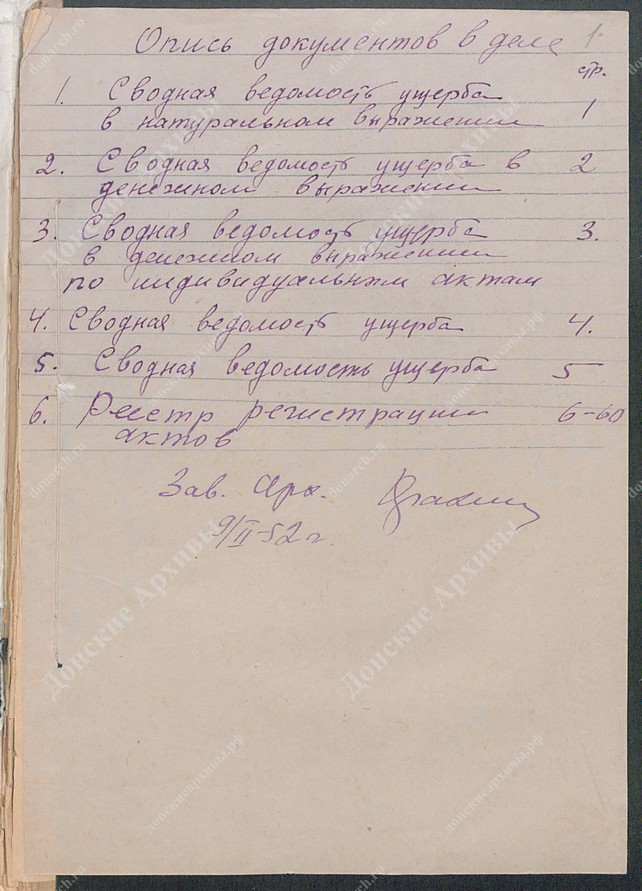 Опись документов в деле 1
стр.
1. Сводная ведомость ущерба
в натуральном выражении 1
2. Сводная ведомость ущерба в 2
денежном выражении
3. Сводная ведомость ущерба 3.
в денежном выражении
по индивидуальным актам
4. Сводная ведомость ущерба 4.
5. Сводная ведомость ущерба 5
6. Реестр регистрации 6-60
актов
Зав. Арх.
9/II-52 г.
Донские Архивы
донскиеархивы.рф
donarch.ru